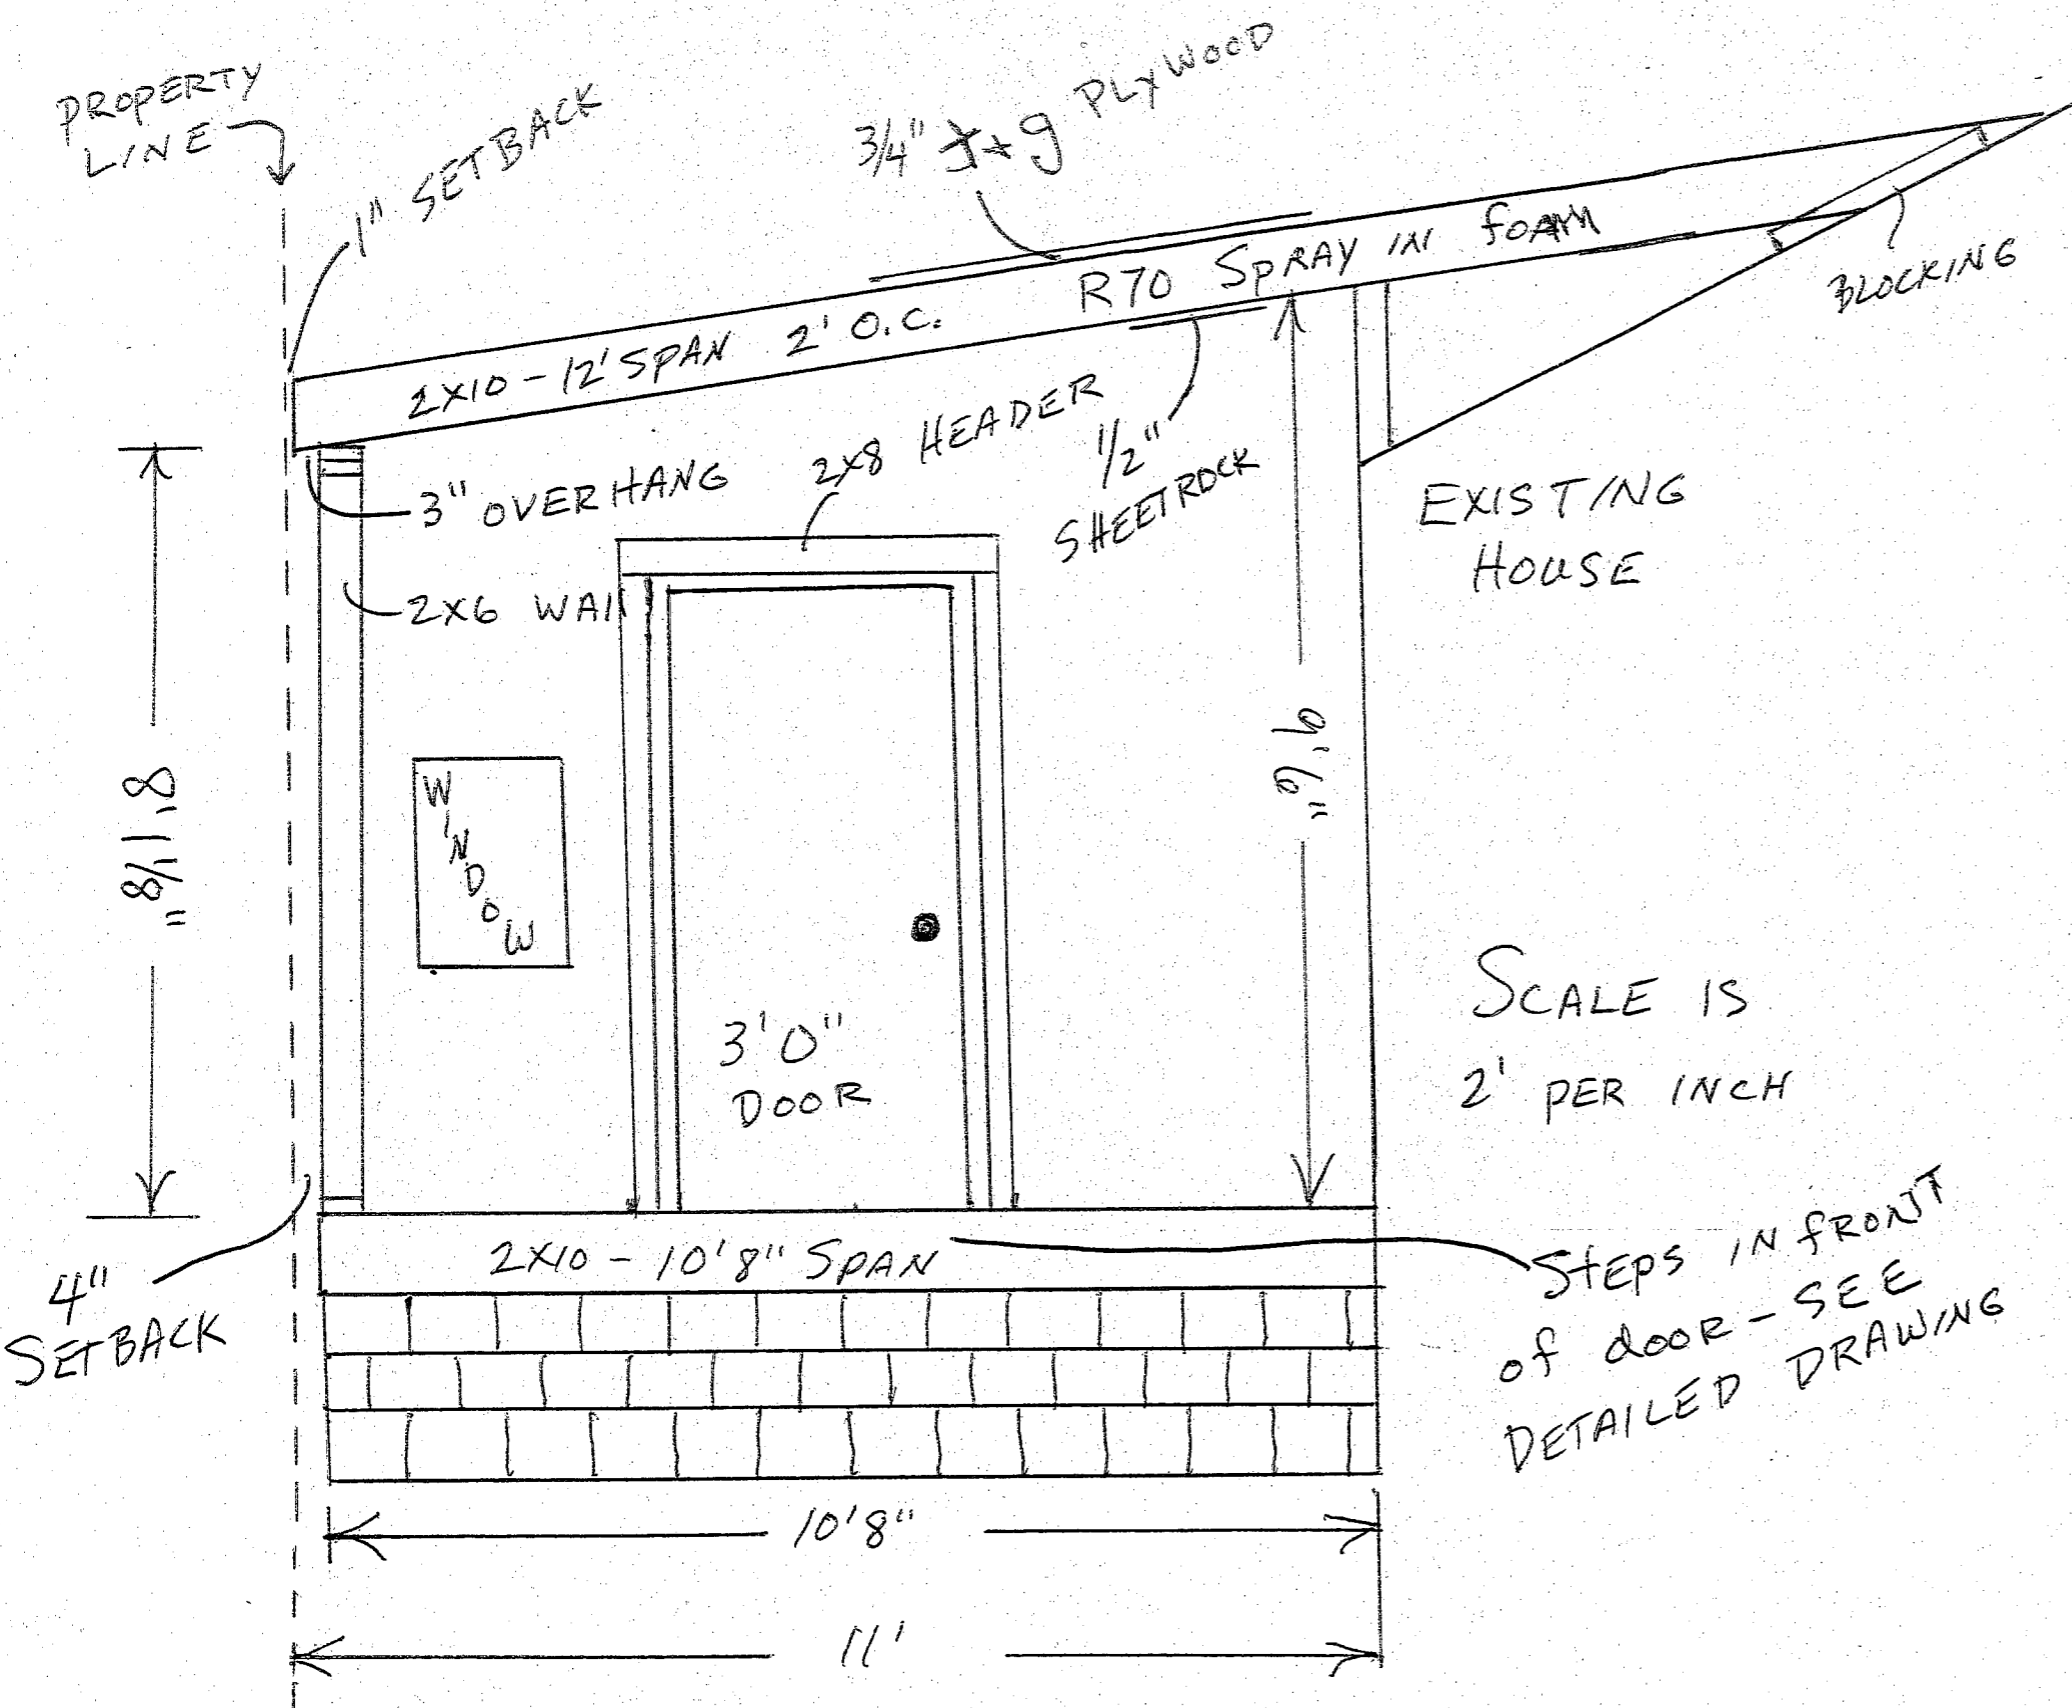 PROPERTY
LINE
1" SETBACK
3/4" t+g PLYWOOD
R70 SPRAY IN FOAM
BLOCKING
2X10 - 12' SPAN 2' O.C.
3" OVERHANG
2X8 HEADER
1/2"
SHEETROCK
EXISTING
HOUSE
2X6 WALL
8'1 1/8"
9'6"
WINDOW
3'0"
DOOR
SCALE IS
2' PER INCH
4"
SETBACK
2X10 - 10'8" SPAN
STEPS IN FRONT
OF DOOR - SEE
DETAILED DRAWING
10'8"
11'